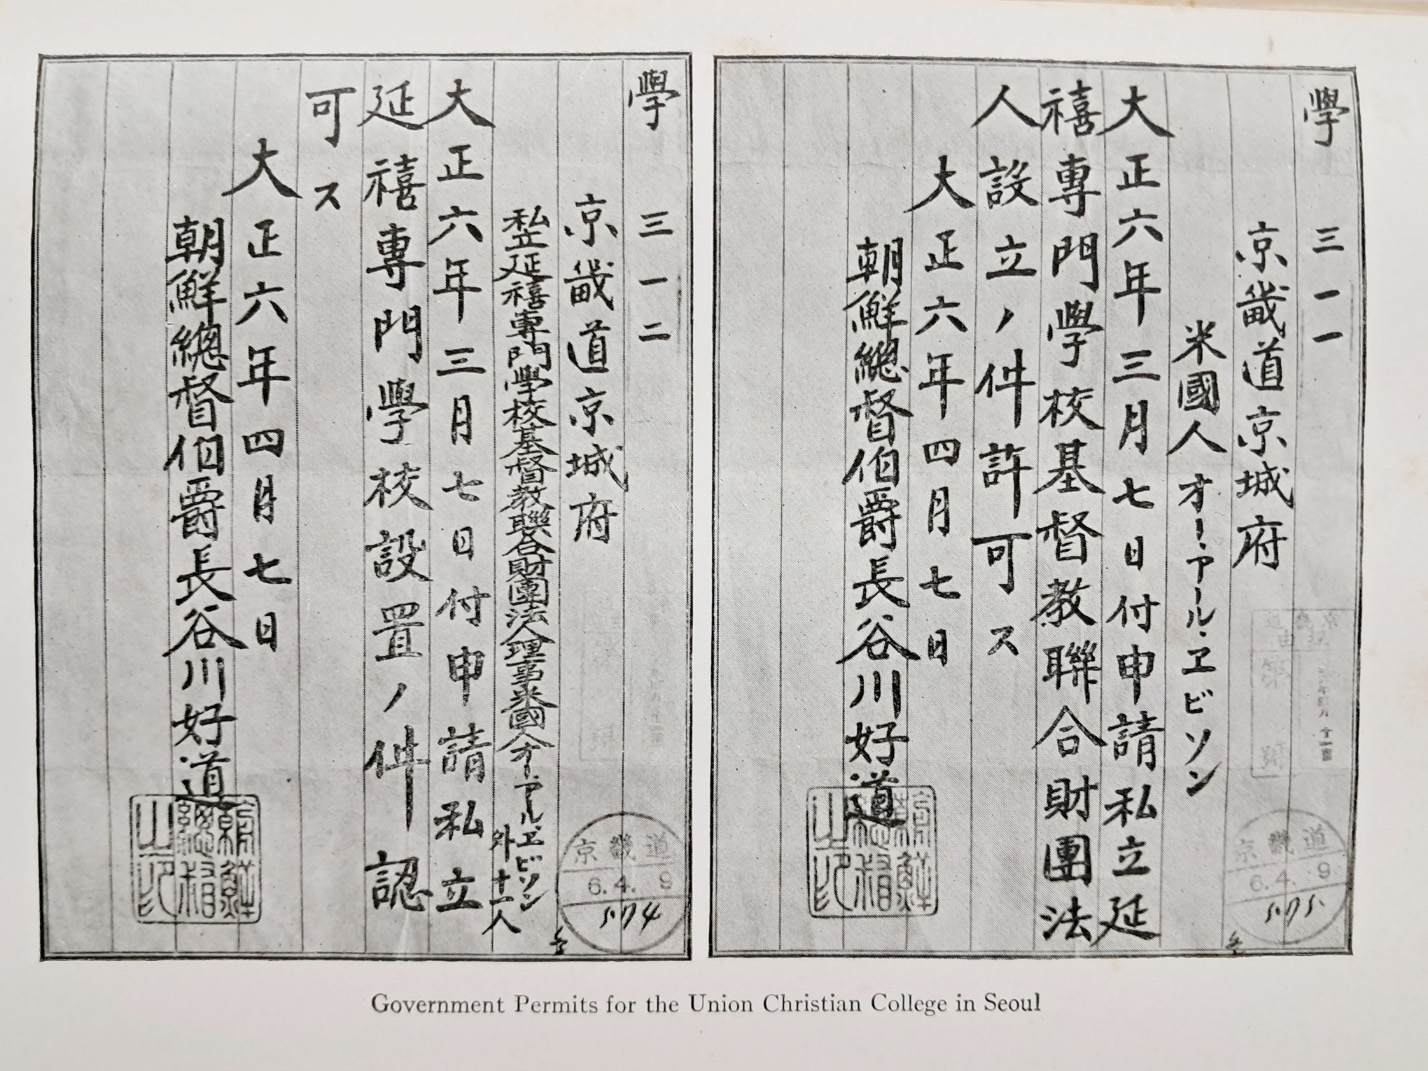 學 三一一
京畿道京城府
米國人オー、アール、ヱビソン
大正六年三月七日付申請私立延
禧專門學校基督教聯合財團法
人設立ノ件許可ス
大正六年四月七日
朝鮮總督伯爵長谷川好道
京畿道
6.4.9
學 三一二
京畿道京城府
私立延禧專門學校基督教聯合財團法人理事米國人オー、アール、ヱビソン
外十一人
大正六年三月七日付申請私立
延禧專門學校設置ノ件認
可ス
大正六年四月七日
朝鮮總督伯爵長谷川好道
京畿道
6.4.9
Government Permits for the Union Christian College in Seoul